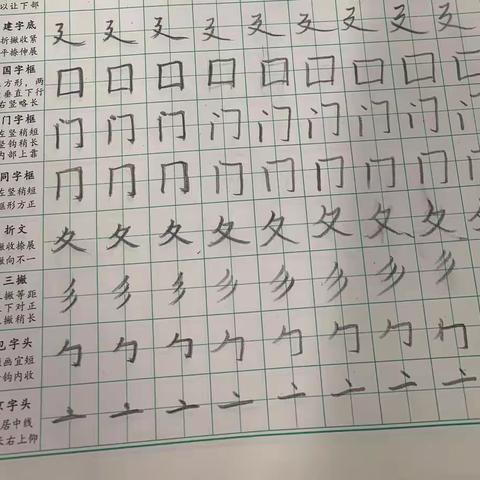 以让下部
建字底
折撇收紧
平捺伸展
廴廴廴廴廴廴廴廴廴
国字框
方形，两
垂直下行
右竖略长
囗囗囗囗囗囗囗囗囗
门字框
左竖稍短
竖钩稍长
内部上靠
门门门门门门门门门
同字框
左竖稍短
框形方正
冂冂冂冂冂冂冂冂冂
折文
撇收捺展
撇向不一
夂夂夂夂夂夂夂夂夂
三撇
撇等距
下对正
撇稍长
彡彡彡彡彡彡彡彡
包字头
画宜短
钩内收
勹勹勹勹勹勹勹勹
京字头
居中线
右上仰
亠亠亠亠亠亠亠亠